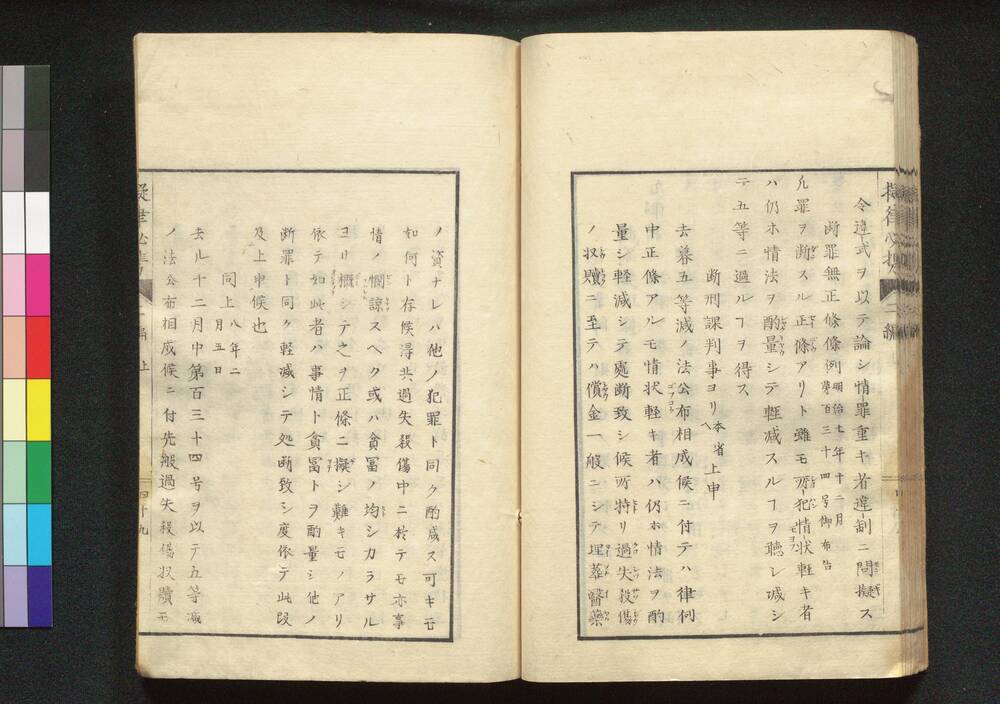 令違式ヲ以テ論シ情罪重キ者違制ニ問擬ス
断罪無正條條例 明治七年十二月 第百三十四号御布告
凡罪ヲ断スル正條アリト雖モ所犯情状軽キ者
ハ仍ホ情法ヲ酌量シテ軽减スルヿヲ聴シ减シ
テ五等ニ過ルヿヲ得ス
断刑課判事ヨリ本省ヘ上申
去暮五等减ノ法公布相成候ニ付テハ律例
中正條アルモ情状軽キ者ハ仍ホ情法ヲ酌
量シ軽减シテ處断致シ候所特リ過失殺傷
ノ収贖ニ至テハ償金一般ニシテ埋葬醫藥
ノ資ナレハ他ノ犯罪ト同ク酌减ス可キモ
如何ト存候得共過失殺傷中ニ於テモ亦事
情ノ憫諒スヘク或ハ貧冨ノ均シカラサル
ヨリ概シテ之ヲ正條ニ擬シ難キモノアリ
依テ如此者ハ事情ト貧冨トヲ酌量シ他ノ
断罪ト同ク軽减シテ処断致シ度依テ此段
及上申候也
同上 八年二月五日
去ル十二月中第百三十四号ヲ以テ五等减
ノ法公布相成候ニ付先般過失殺傷収贖モ
二編
二編 上
四十九